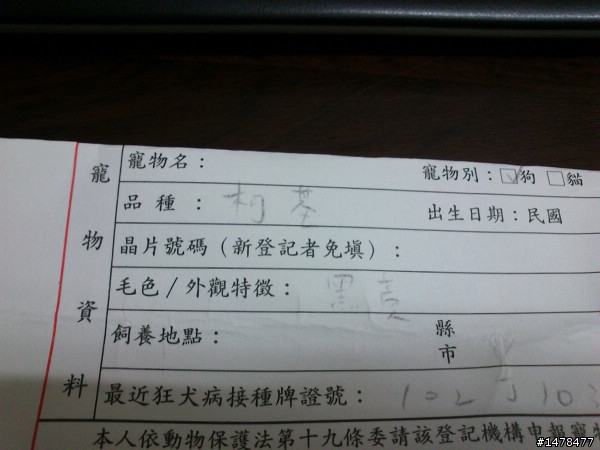 寵物資料
寵物名： 寵物別：☑狗 □貓
品種：柯基 出生日期：民國
晶片號碼（新登記者免填）：
毛色／外觀特徵：黑
飼養地點： 縣
市
最近狂犬病接種牌證號：102 103
本人依動物保護法第十九條委請該登記機構申報寵物
#1478477